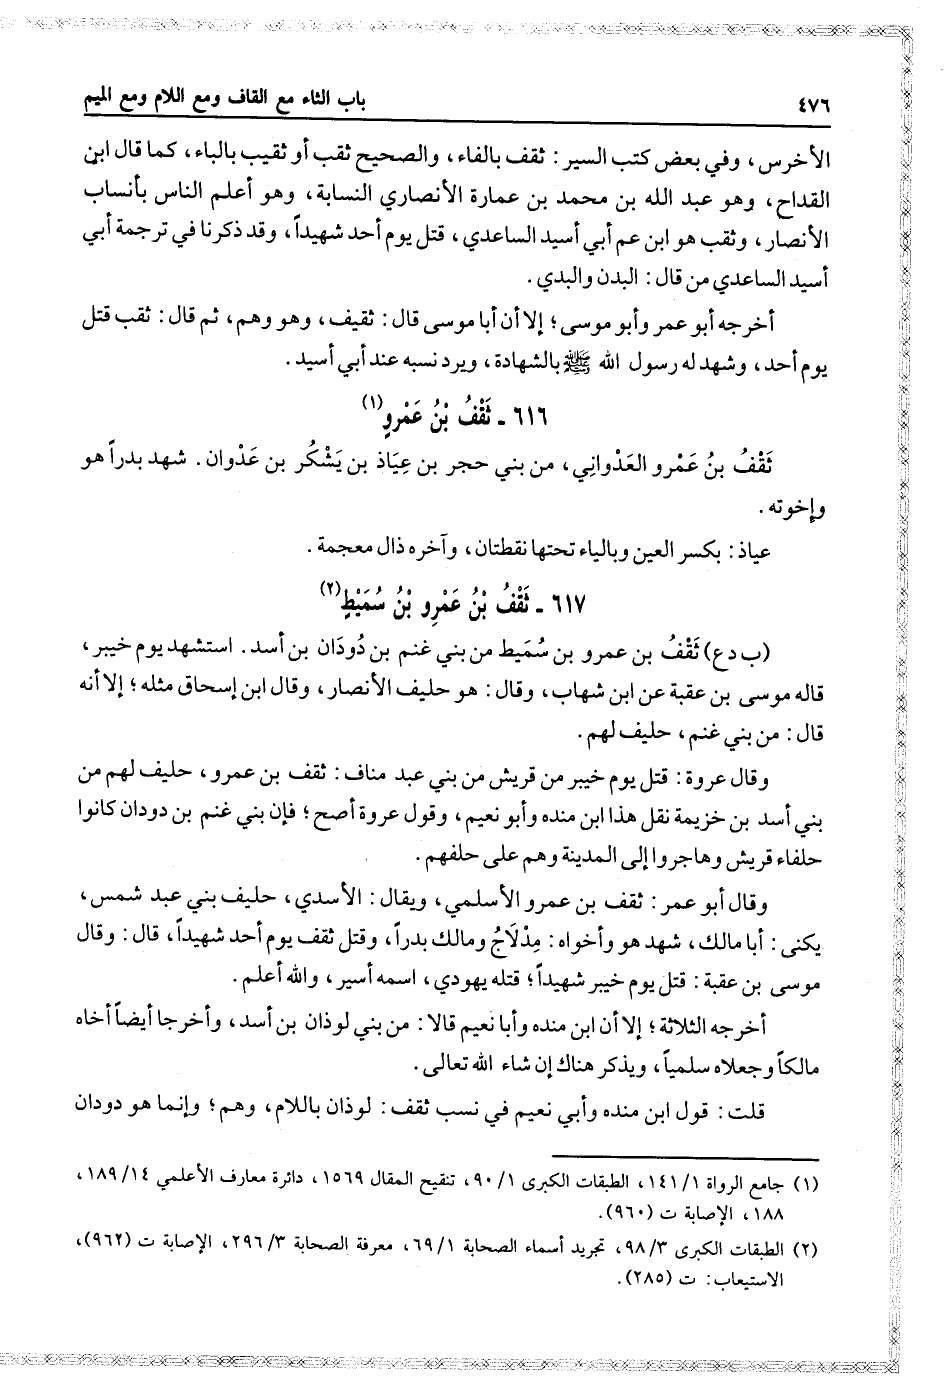 ٤٧٦ باب الثاء مع القاف ومع اللام ومع الميم
الأخرس، وفي بعض كتب السير: ثقف بالفاء، والصحيح ثقب أو ثقيب بالباء، كما قال ابن
القداح، وهو عبد الله بن محمد بن عمارة الأنصاري النسابة، وهو أعلم الناس بأنساب
الأنصار، وثقب هو ابن عم أبي أسيد الساعدي، قتل يوم أحد شهيداً، وقد ذكرنا في ترجمة أبي
أسيد الساعدي من قال: البدن والبدي.
أخرجه أبو عمر وأبو موسى؛ إلا أن أبا موسى قال: ثقيف، وهو وهم، ثم قال: ثقب قتل
يوم أحد، وشهد له رسول الله ﷺ بالشهادة، ويرد نسبه عند أبي أسيد.
٦١٦ ـ ثَقْفُ بْنُ عَمْرٍو(١)
ثَقْفُ بنُ عَمْرو العَدْوانِي، من بني حجر بن عِيَاذ بن يَشْكُر بن عَدْوان. شهد بدراً هو
وإخوته.
عياذ: بكسر العين وبالياء تحتها نقطتان، وآخره ذال معجمة.
٦١٧ ـ ثَقْفُ بْنُ عَمْرِو بْنُ سُمَيْطٍ(٢)
(ب دع) ثَقْفُ بن عمرو بن سُمَيط من بني غنم بن دُودَان بن أسد. استشهد يوم خيبر،
قاله موسى بن عقبة عن ابن شهاب، وقال: هو حليف الأنصار، وقال ابن إسحاق مثله؛ إلا أنه
قال: من بني غنم، حليف لهم.
وقال عروة: قتل يوم خيبر من قريش من بني عبد مناف: ثقف بن عمرو، حليف لهم من
بني أسد بن خزيمة نقل هذا ابن منده وأبو نعيم، وقول عروة أصح؛ فإن بني غنم بن دودان كانوا
حلفاء قريش وهاجروا إلى المدينة وهم على حلفهم.
وقال أبو عمر: ثقف بن عمرو الأسلمي، ويقال: الأسدي، حليف بني عبد شمس،
يكنى: أبا مالك، شهد هو وأخواه: مِدْلَاجُ ومالك بدراً، وقتل ثقف يوم أحد شهيداً، قال: وقال
موسى بن عقبة: قتل يوم خيبر شهيداً؛ قتله يهودي، اسمه أسير، والله أعلم.
أخرجه الثلاثة؛ إلا أن ابن منده وأبا نعيم قالا: من بني لوذان بن أسد، وأخرجا أيضاً أخاه
مالكاً وجعلاه سلمياً، ويذكر هناك إن شاء الله تعالى.
قلت: قول ابن منده وأبي نعيم في نسب ثقف: لوذان باللام، وهم؛ وإنما هو دودان
(١) جامع الرواة ١٤١/١، الطبقات الكبرى ٩٠/١، تنقيح المقال ١٥٦٩، دائرة معارف الأعلمي ١٨٩/١٤،
١٨٨، الإصابة ت (٩٦٠).
(٢) الطبقات الكبرى ٩٨/٣، تجريد أسماء الصحابة ٦٩/١، معرفة الصحابة ٢٩٦/٣، الإصابة ت (٩٦٢)،
الاستيعاب: ت (٢٨٥).